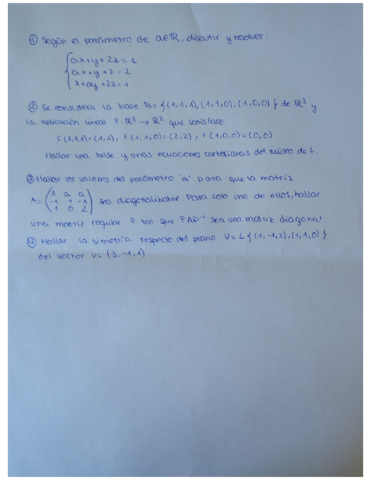 ① Según el parámetro de a∈ℝ, discutir y resolver.
{ax+y+2z=1
ax+y+z=2
x+ay+2z=1
② Se considera la base B={(1,1,1),(1,1,0),(1,0,0)} de ℝ³ y
la aplicación lineal f:ℝ³→ℝ² que satisface:
f(1,1,1)=(1,1), f(1,1,0)=(2,2), f(1,0,0)=(0,0)
Hallar una base y unas ecuaciones cartesianas del núcleo de f.
③ Hallar los valores del parámetro "a" para que la matriz
A=(1 a a
-1 1 -1
1 0 2) sea diagonalizable. Para solo uno de ellos, hallar
una matriz regular P tal que PAP⁻¹ sea una matriz diagonal.
④ Hallar la simetría respecto del plano U=L{(1,-1,2),(1,1,0)}
del vector v=(3,-1,1)